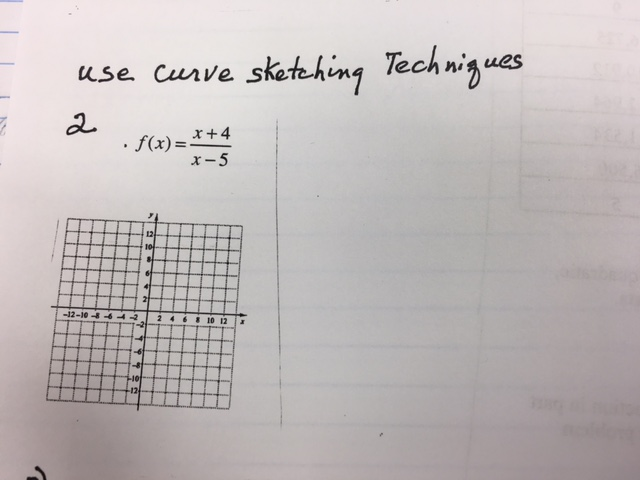 use curve sketching Techniques
2
. f(x) = x+4
x-5
y
12
10
8
6
4
2
-12 -10 -8 -6 -4 -2 2 4 6 8 10 12 x
-2
-4
-6
-8
-10
-12